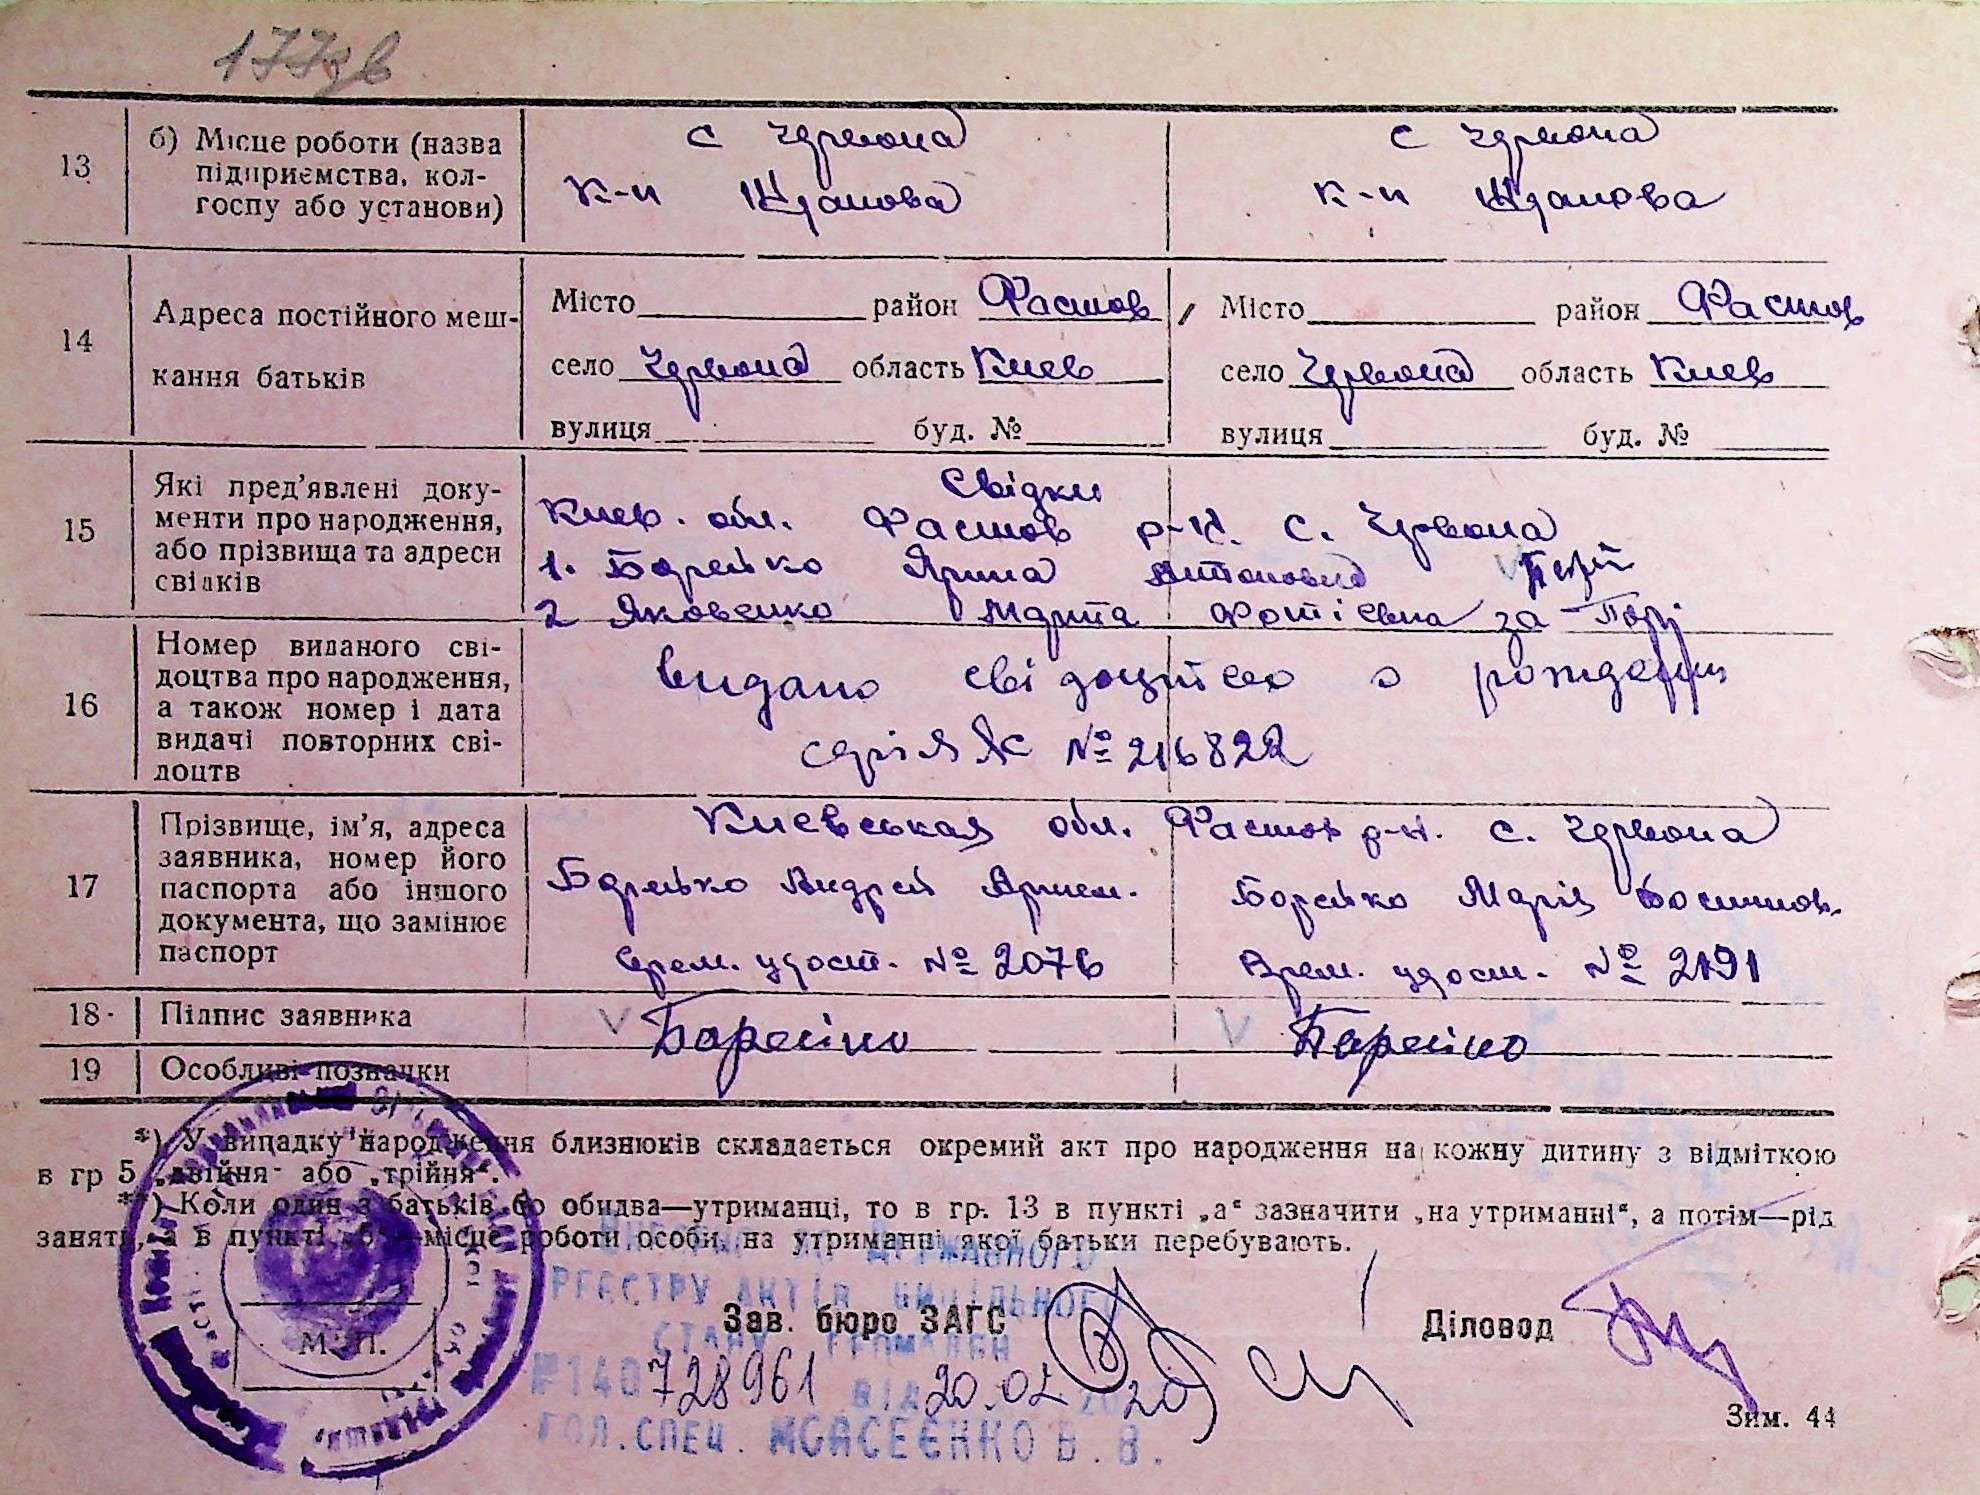 177зв
13
б) Місце роботи (назва
підприємства, кол-
госпу або установи)
с Червона
к-п Жданова
с Червона
к-п Жданова
14
Адреса постійного меш-
кання батьків
Місто район Фастов
село Червона область Киев
вулиця буд. №
Місто район Фастов
село Червона область Киев
вулиця буд. №
15
Які пред'явлені доку-
менти про народження,
або прізвища та адреси
свідків
Свідки
Киев. обл. Фастов р-н. с. Червона
1. Борейко Ярина Антоновна
2 Яковенко Марта Фотіевна за
16
Номер виданого сві-
доцтва про народження,
а також номер і дата
видачі повторних сві-
доцтв
видано свідоцтво о рождении
серія ЯС № 216822
17
Прізвище, ім'я, адреса
заявника, номер його
паспорта або іншого
документа, що замінює
паспорт
Киевськая обл. Фастов р-н. с. Червона
Борейко Андрей Артем.
врем. удост. № 2076
Борейко Марія
Врем. удост. № 2191
18
Підпис заявника
V Борейко
V Борейко
19
Особливі позначки
*) У випадку народження близнюків складається окремий акт про народження на кожну дитину з відміткою
в гр 5 „двійня" або „трійня".
**) Коли один з батьків бо обидва—утриманці, то в гр. 13 в пункті „а" зазначити „на утриманні", а потім—рід
занять, а в пункті „б"—місце роботи особи, на утриманні якої батьки перебувають.
ДЕРЖАВНОГО
РЕЄСТРУ АКТІВ ЦИВІЛЬНОГО
Зав. бюро ЗАГС
Діловод
СТАНУ ГРОМАДЯН
М. П.
№140 728961 ВІД 20.02 2020
ГОЛ. СПЕЦ. МОИСЕЄНКО В. В.
Зим. 44